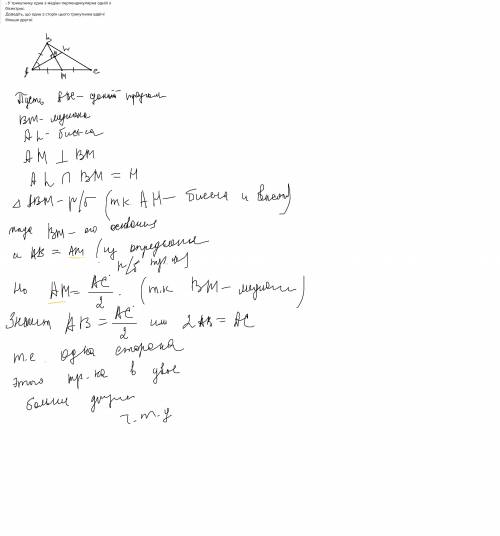 . У трикутнику одна з медіан перпендикулярна одній з
бісектрис.
Доведіть, що одна із сторін цього трикутника вдвічі
більша другої
B
A M C
Пусть ABC – данный
BM –
AL –
AM ⊥ BM
AL ∩ BM = H
△ ABM – р/б (тк AH –
BM – его основание
и AB = AM (из определения
р/б
Но AM = AC/2 . (т.к BM –
Значит AB = AC/2 или 2AB = AC
т.е. одна сторона
этого тр-ка в двое
больше другой
ч.т.д